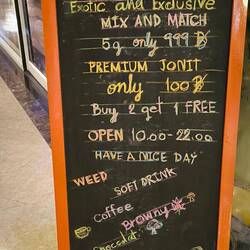 Exotic and Exclusive
MIX AND MATCH
5g only 999 ฿
PREMIUM JONIT
only 100 ฿
Buy 2 get 1 FREE
OPEN 10.00-22.00
HAVE A NICE DAY
WEED
SOFT DRINK
Coffee
Browny
Chocolat